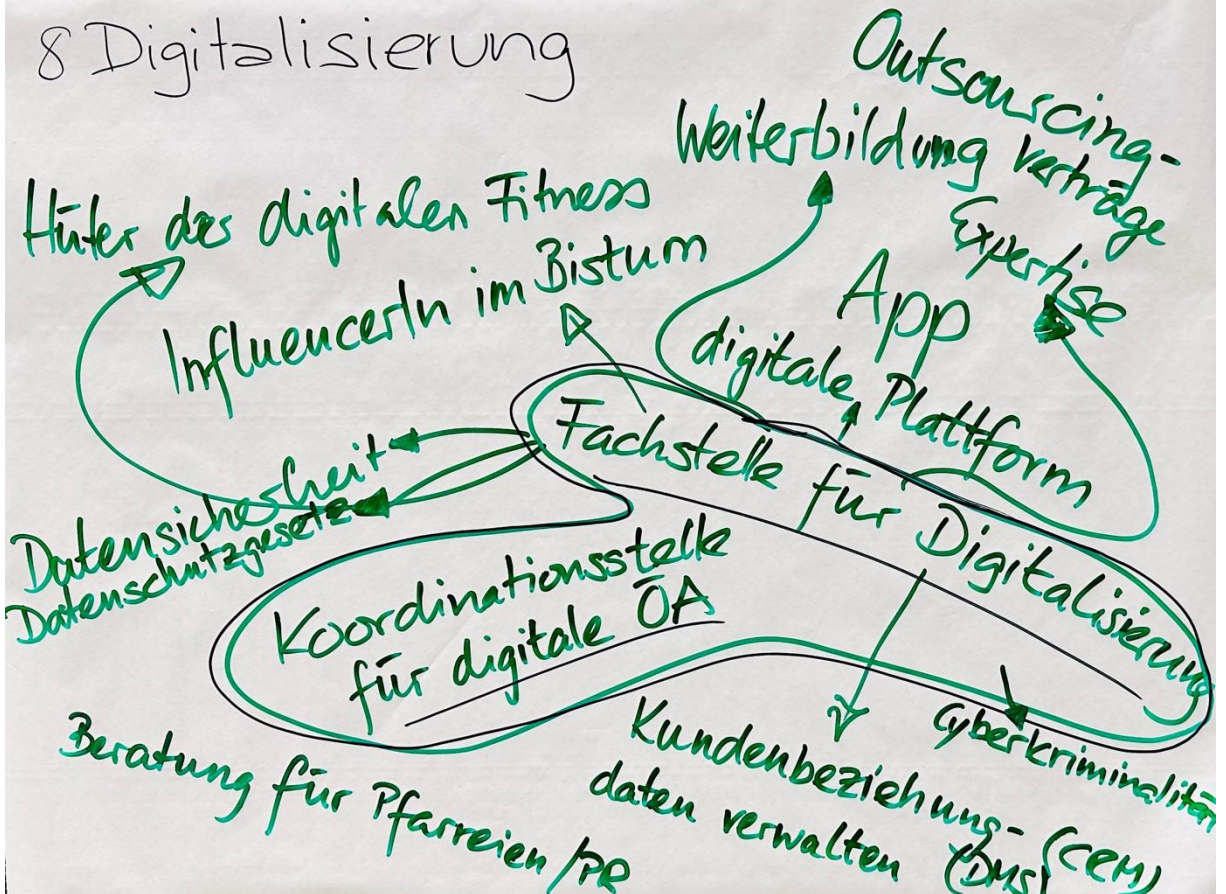 8 Digitalisierung
Outsourcing-
verträge
Expertise
Weiterbildung
Hüter der digitalen Fitness
InfluencerIn im Bistum
App
digitale Plattform
Fachstelle für Digitalisierung
Datensicherheit
Datenschutzgesetz
Koordinationsstelle
für digitale ÖA
Cyberkriminalität
Kundenbeziehung- (CRM)
daten verwalten (DMS)
Beratung für Pfarreien/PR